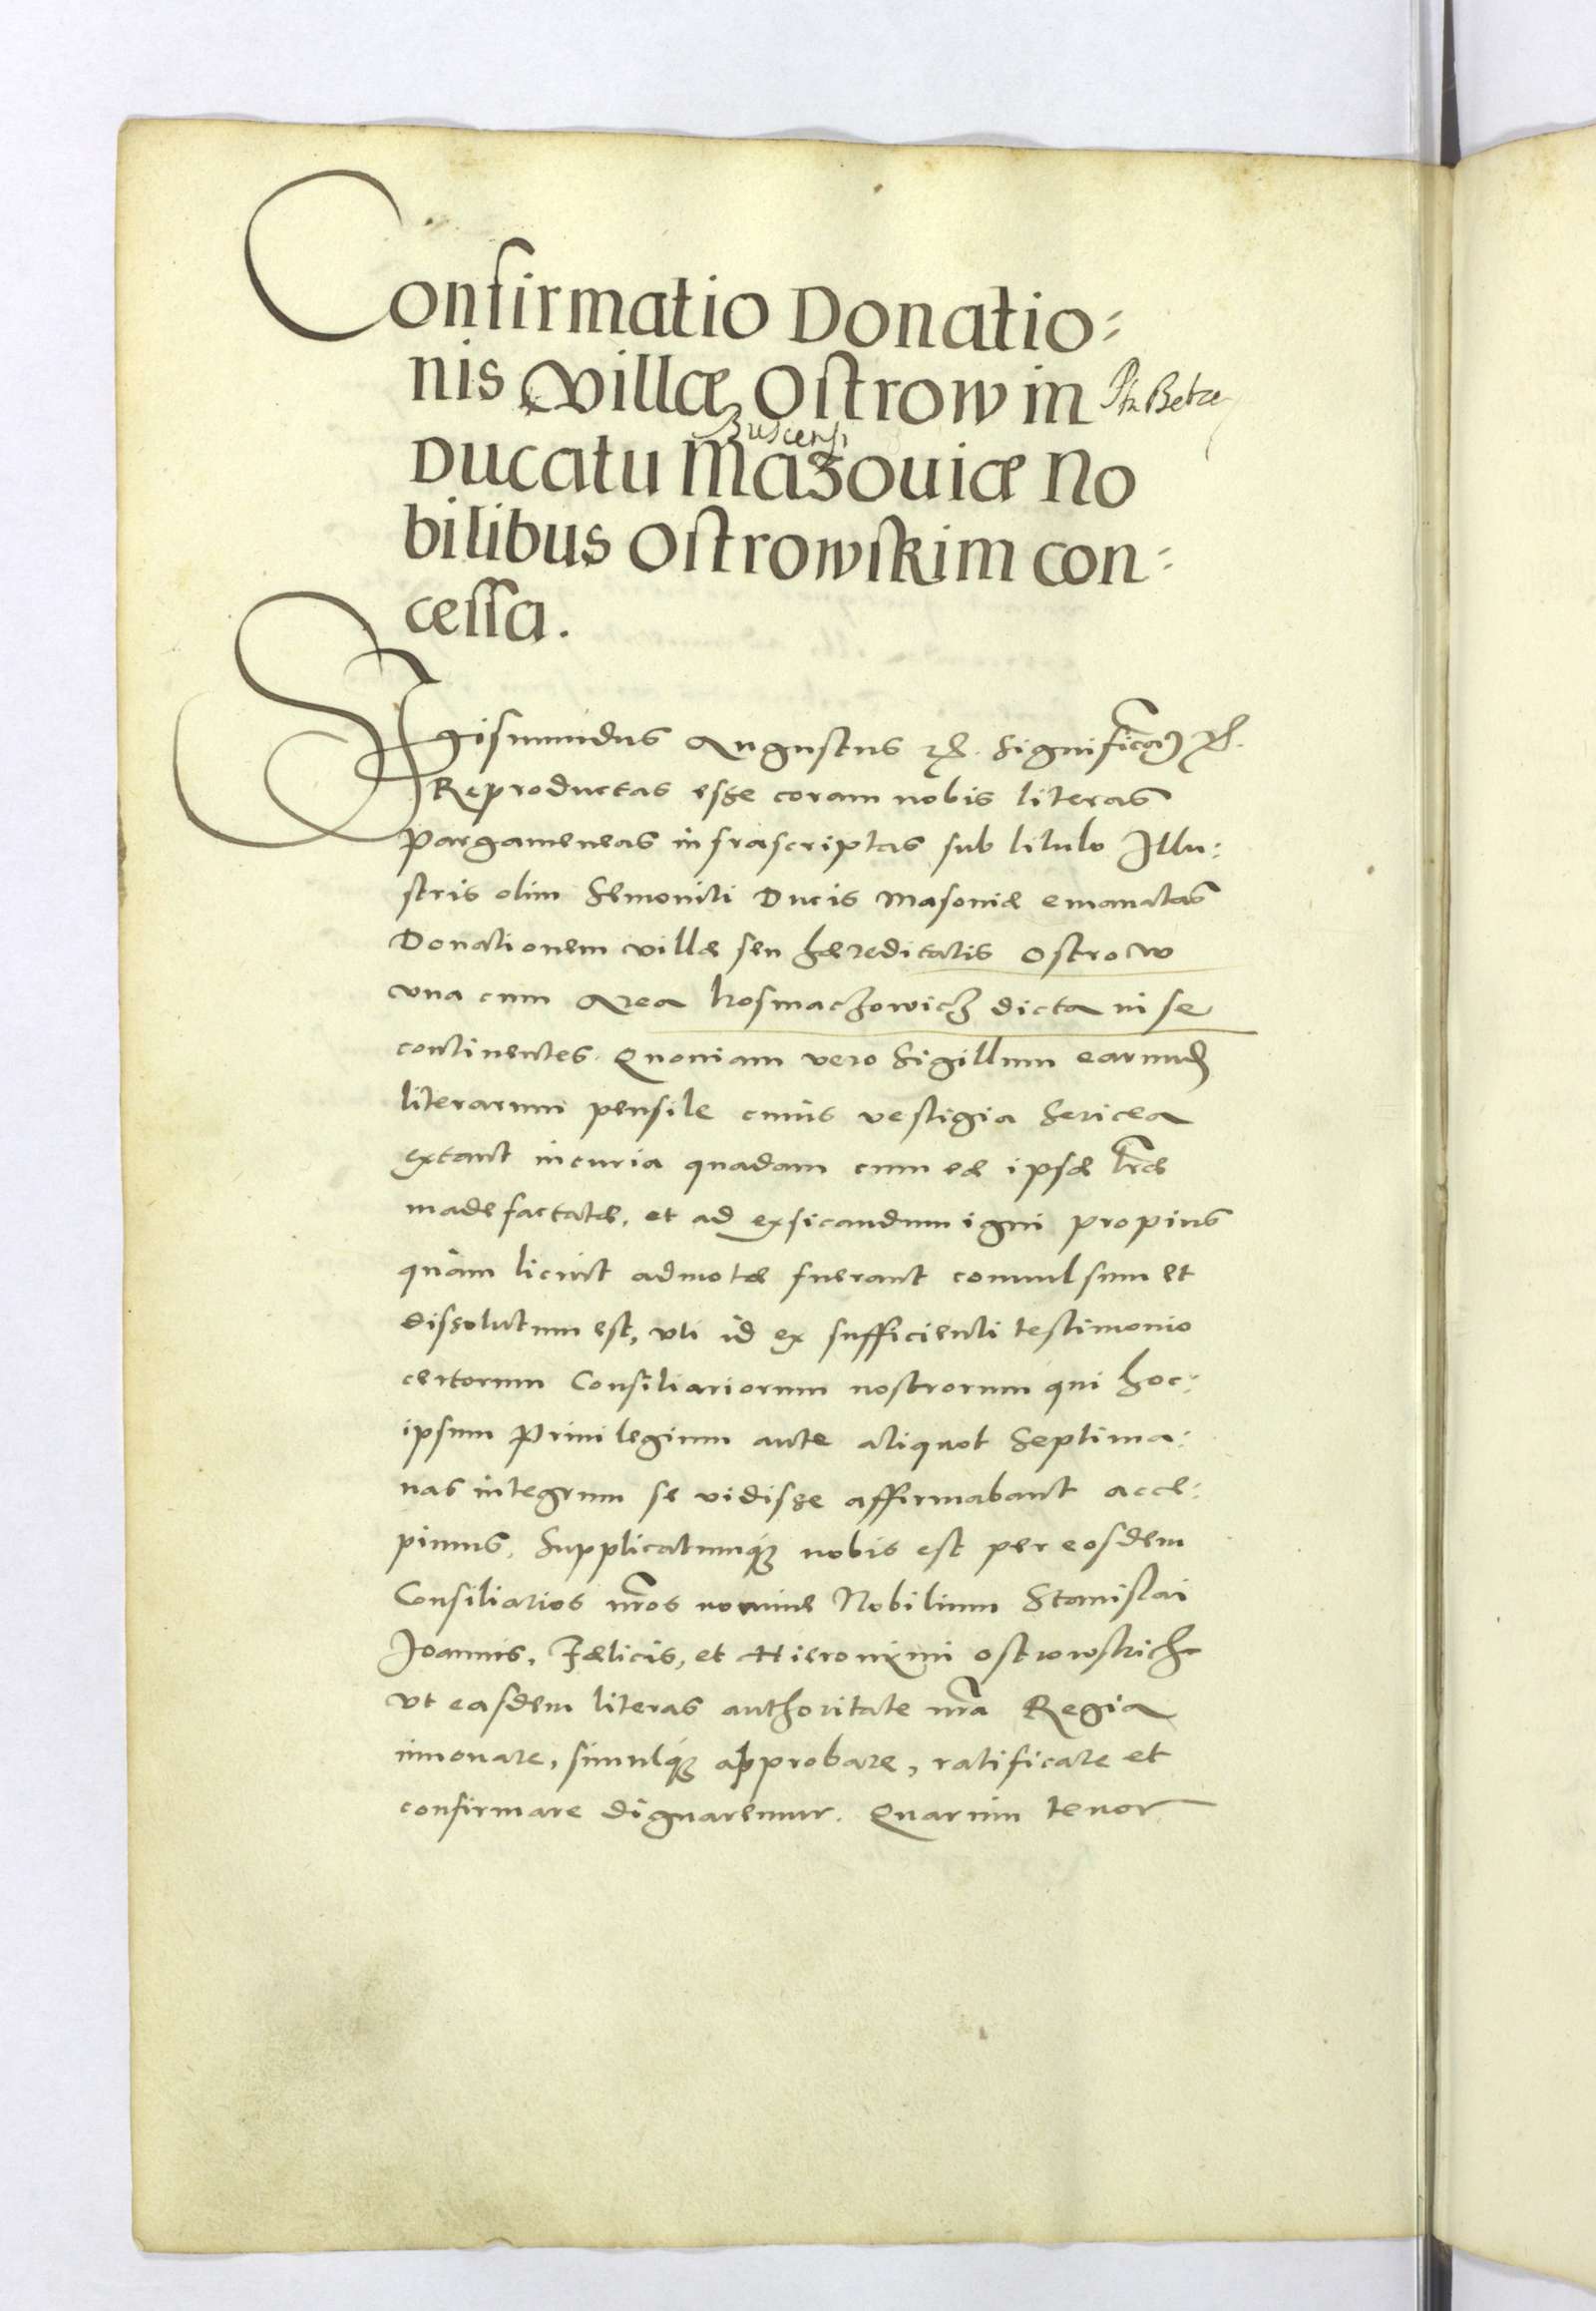 Confirmatio Donatio=
nis Villæ Ostrow in
Ducatu Mazouiæ No
bilibus Ostrowskim con=
cessa.
Sigismundus Augustus
Reproductas esse coram nobis literas
Pargameneas infrascriptas sub titulo Illu:
stris olim Semoniti Ducis Masoniæ emanatas
Donationem villæ seu hæreditatis Ostrow
vna cum Area dicta in se
continentes. Quoniam vero Sigillum earumd
literarum pensile cuius vestigia Sericea
extant incuria quadam cum eæ ipsæ lræ
madefactatæ, et ad exsicandum igni propius
quàm licuit admotæ fuerant conuulsum et
dissolutum est, vti id ex sufficienti testimonio
certorum Consiliariorum nostrorum qui hoc:
ipsum Priuilegium ante aliquot Septima:
nas integrum se vidisse affirmabant acce:
pimus. Supplicatumq3 nobis est per eosdem
Consiliarios nros nomine Nobilium Stanislai
Joannis, Fælicis, et Hieronimi Ostrowskich
vt easdem literas authoritate nra Regia
innouare, simulq3 approbare, ratificare et
confirmare dignaremur. Quarum tenor